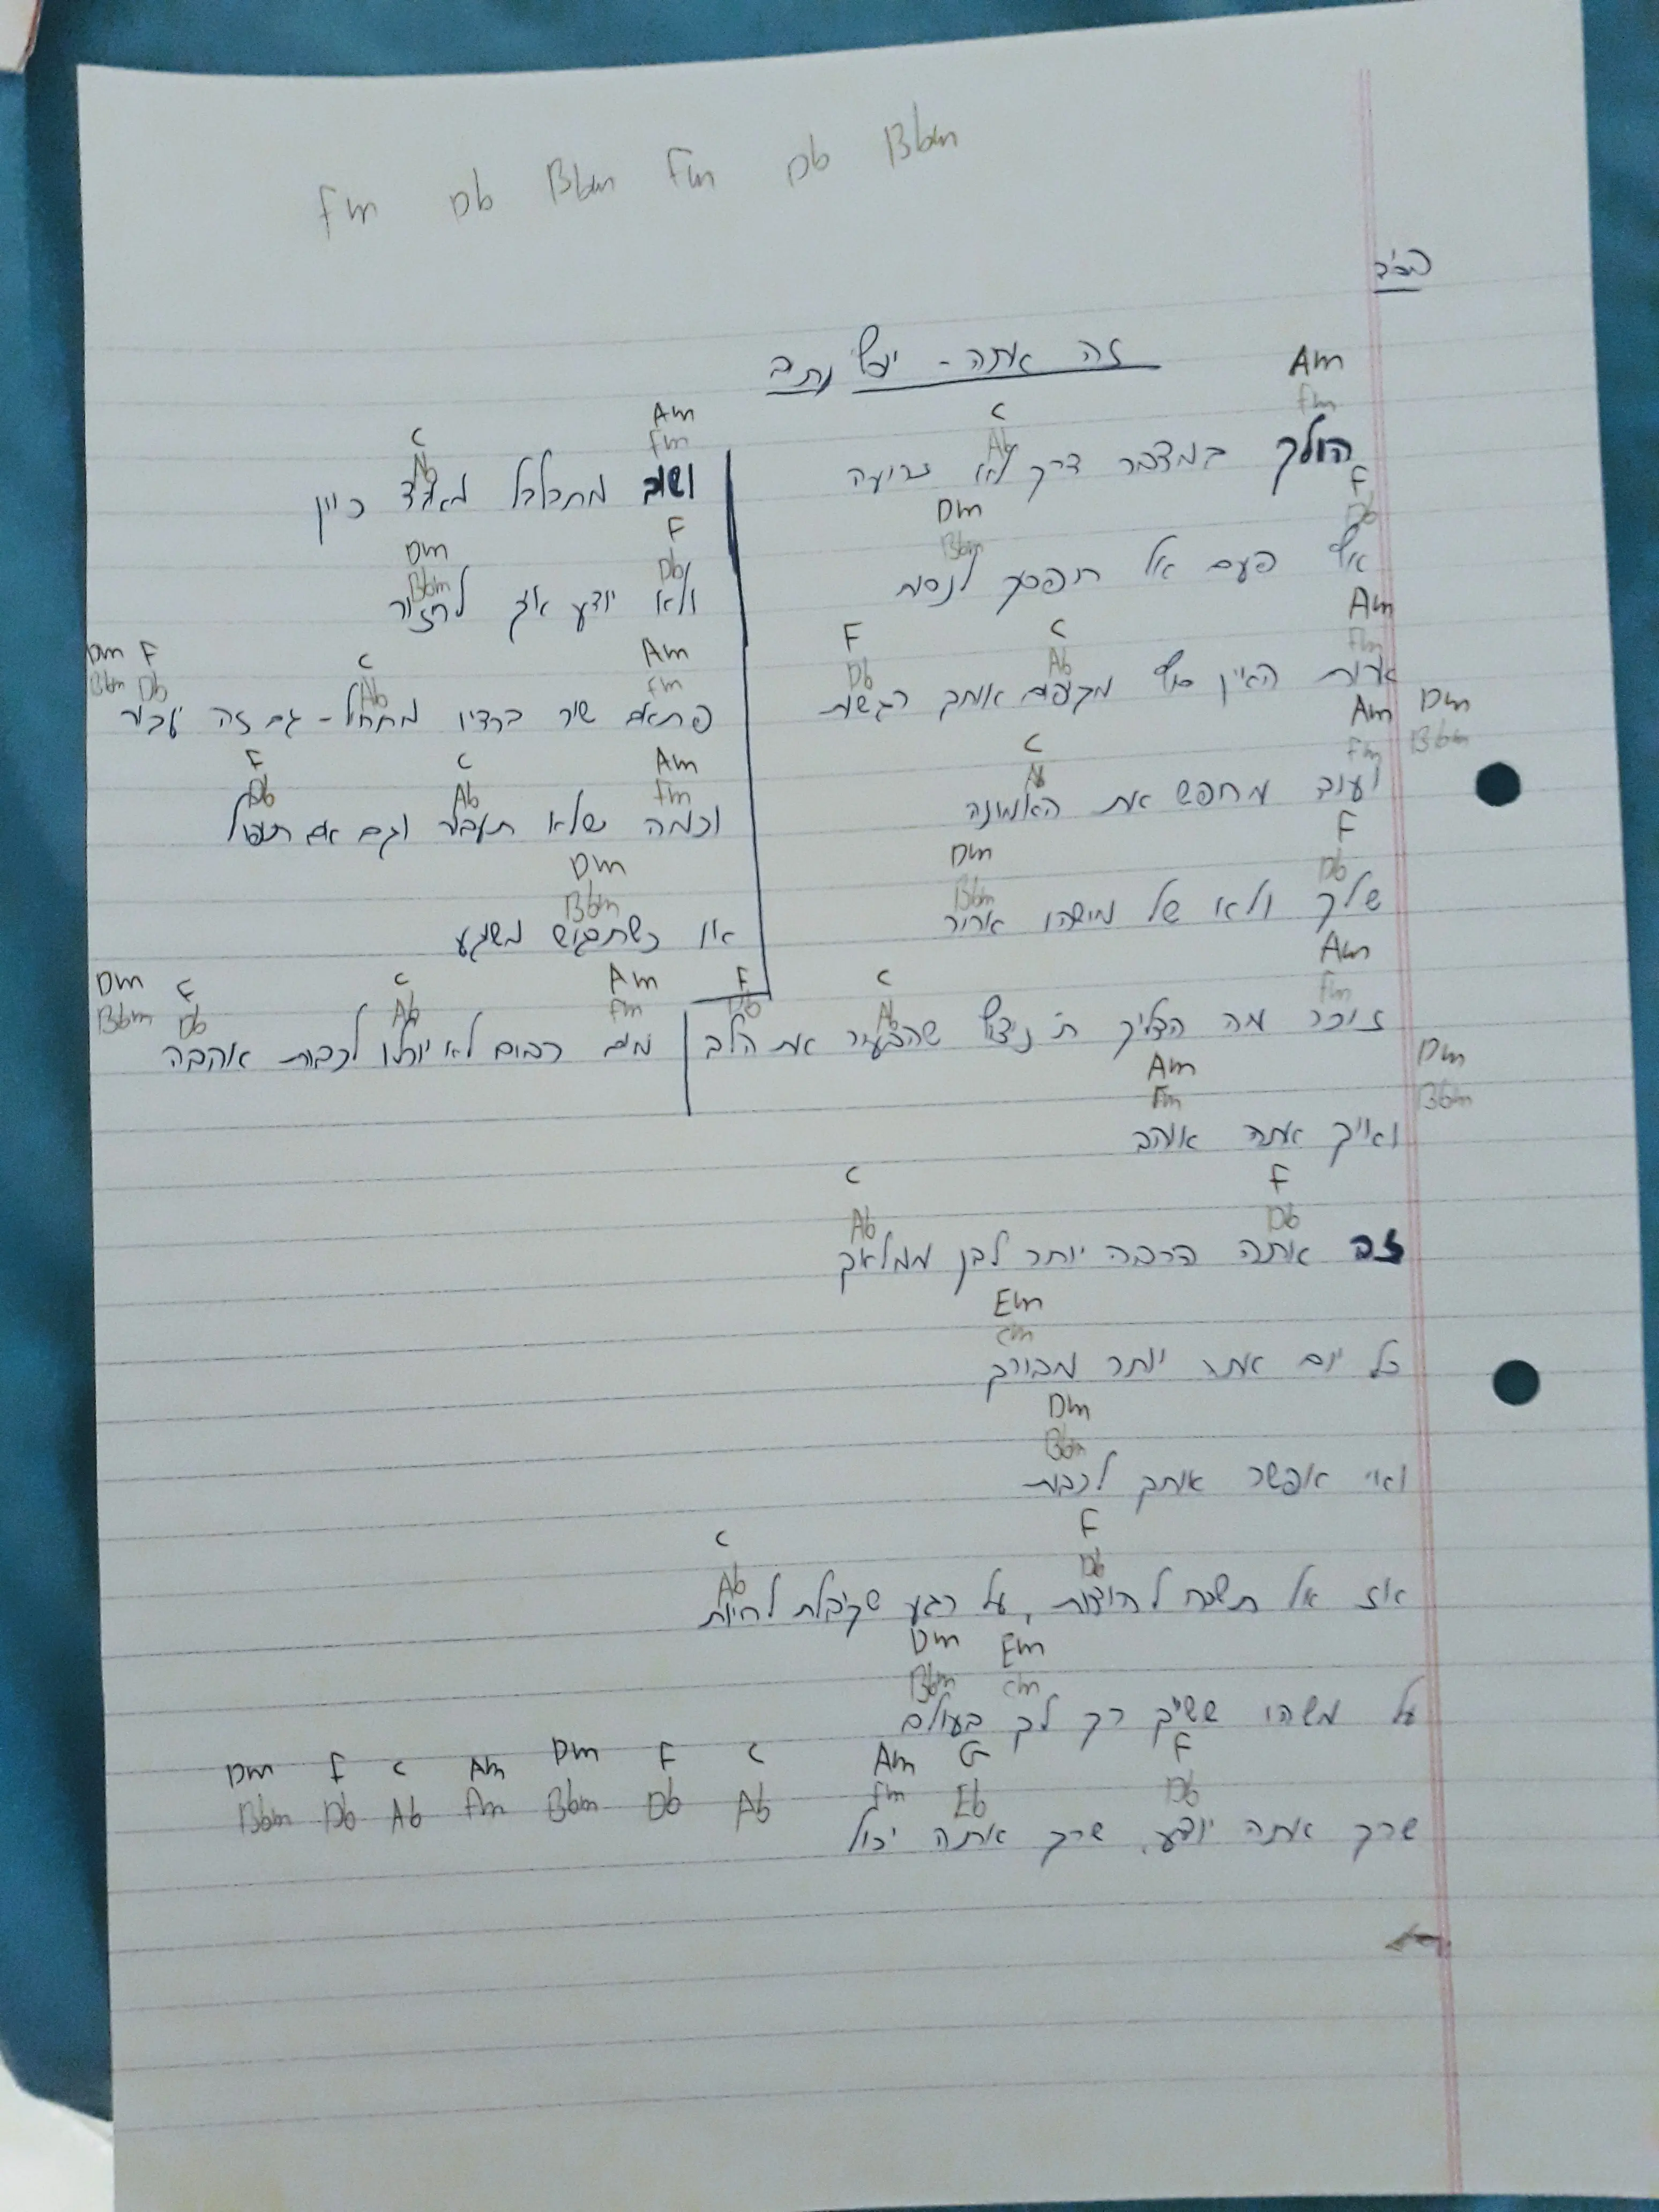 Fm Db Bbm Fm Db Bbm
בס"ד
זה אתה - יגל נתיב
Am C
Fm Ab
הולך במדבר דרך לא זרועה
F Dm
Db Bbm
אף פעם אל תפסק לנסות
Am C F
Fm Ab Db
ארצות האין סוף מקיפים אותך רגשות
Dm Am C
Bbm Fm Ab
ועוד מחפש את האמונה
F Dm
Db Bbm
שלך ולא של מישהו אחר
Am C F
Fm Ab Db
זוכר מה הדליק ת'ניצוץ שהבעיר את הלב
Dm Am
Bbm Fm
ואיך אתה אוהב
F C
Db Ab
זה אתה הרבה יותר לבן ממלאך
Em
Cm
כל יום אתה יותר מבורך
Dm
Bbm
ואי אפשר אותך לכבות
F C
Db Ab
אז אל תשכח להודות, על רגע שקיבלת לחיות
Em Dm
Cm Bbm
על משהו ששייך רק לך בעולם
F G Am C F Dm Am C F Dm
Db Eb Fm Ab Db Bbm Fm Ab Db Bbm
שרק אתה יודע, שרק אתה יכול
Am C
Fm Ab
ושוב מתבלבל מאבד כיוון
F Dm
Db Bbm
ולא יודע איך לחזור
Am C F Dm
Fm Ab Db Bbm
פתאום שיר ברדיו מתחיל - גם זה יעבור
Am C F
Fm Ab Db
וכמה שלא תעבור וגם אם תיפול
Dm
Bbm
או כשתרגיש משוגע
Am C F Dm
Fm Ab Db Bbm
מים רבים לא יוכלו לכבות אהבה